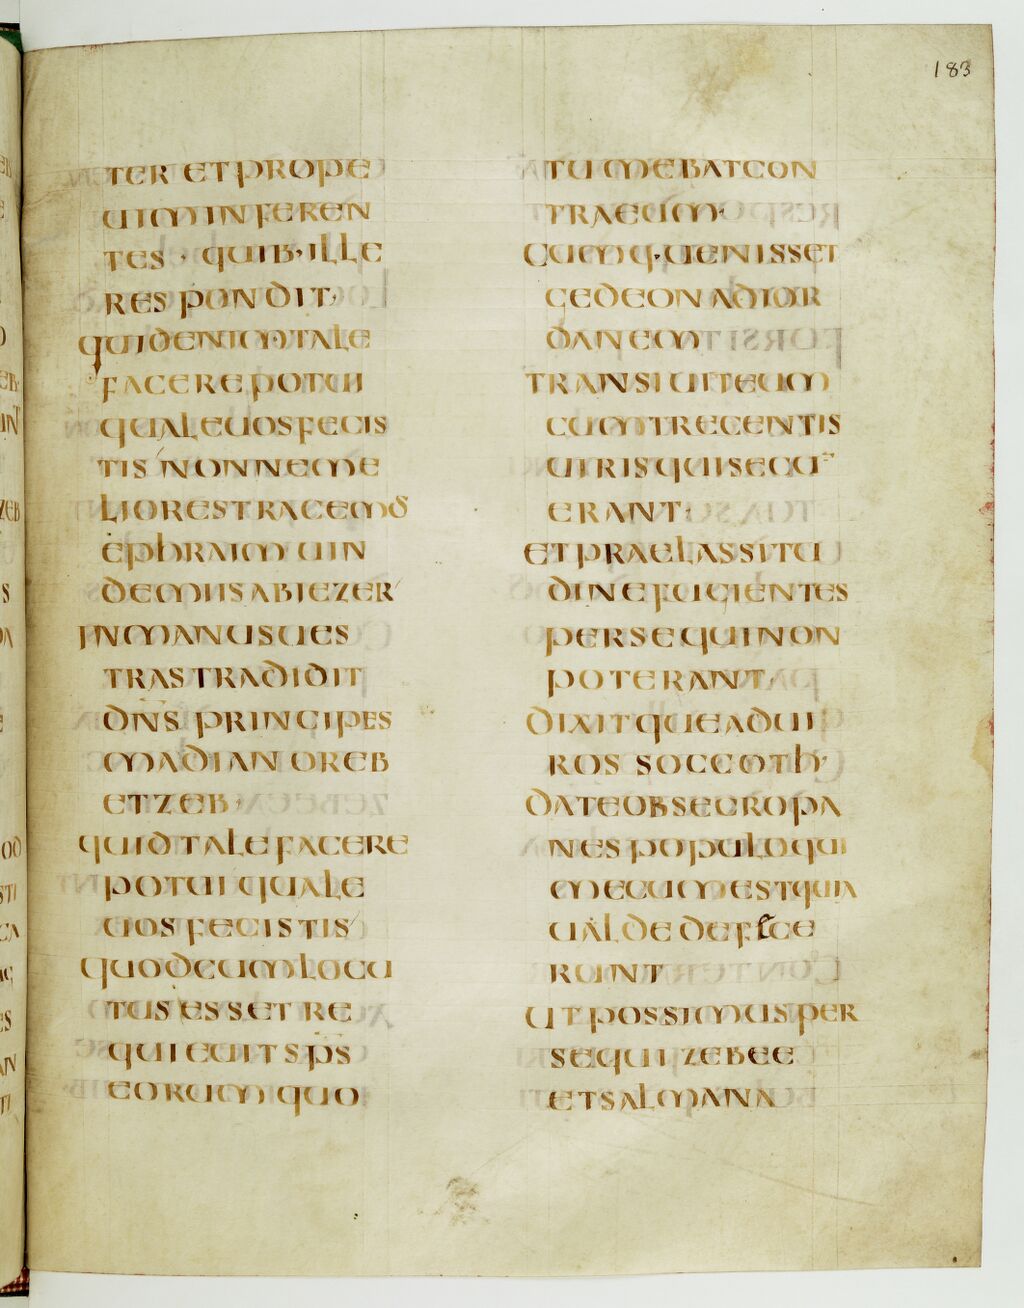 183
TER ET PROPE
UIM INFEREN
TES · QUIB· ILLE
RESPONDIT·
QUID ENIM TALE
FACERE POTUI
QUALE UOS FECIS
TIS NONNE ME
LIOR EST RACEMUS
EPHRAIM UIN
DEMIIS ABIEZER
IN MANUS UES
TRAS TRADIDIT
DNS PRINCIPES
MADIAN OREB
ET ZEB·
QUID TALE FACERE
POTUI QUALE
UOS FECISTIS
QUOD CUM LOCU
TUS ESSET RE
QUIEUIT SPS
EORUM QUO
TUMEBAT CON
TRA EUM·
CUMQ· UENISSET
GEDEON AD IOR
DANEM
TRANSIUIT EUM
CUM TRECENTIS
UIRIS QUI SECU
ERANT·
ET PRAE LASSITU
DINE FUGIENTES
PERSEQUI NON
POTERANT·
DIXITQUE AD UI
ROS SOCCOTH·
DATE OBSECRO PA
NES POPULO QUI
MECUM EST QUIA
UALDE DEFECE
RUNT
UT POSSIMUS PER
SEQUI ZEBEE
ET SALMANA